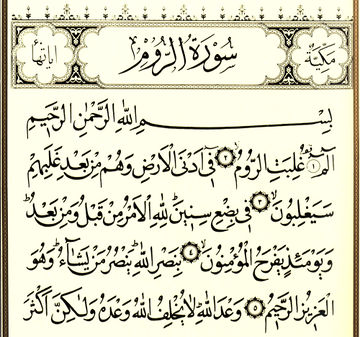 مكية سورة الروم آياتها
بسم الله الرحمن الرحيم
الٓمٓ ۝١ غُلِبَتِ الرُّومُ ۝٢ فِىٓ أَدْنَى الْأَرْضِ وَهُمْ مِنْ بَعْدِ غَلَبِهِمْ
سَيَغْلِبُونَ ۝٣ فِى بِضْعِ سِنِينَ ۗ لِلّٰهِ الْأَمْرُ مِنْ قَبْلُ وَمِنْ بَعْدُ ۚ
وَيَوْمَئِذٍ يَفْرَحُ الْمُؤْمِنُونَ ۝٤ بِنَصْرِ اللّٰهِ ۚ يَنْصُرُ مَنْ يَشَآءُ ۖ وَهُوَ
الْعَزِيزُ الرَّحِيمُ ۝٥ وَعْدَ اللّٰهِ ۖ لَا يُخْلِفُ اللّٰهُ وَعْدَهُ وَلٰكِنَّ أَكْثَرَ